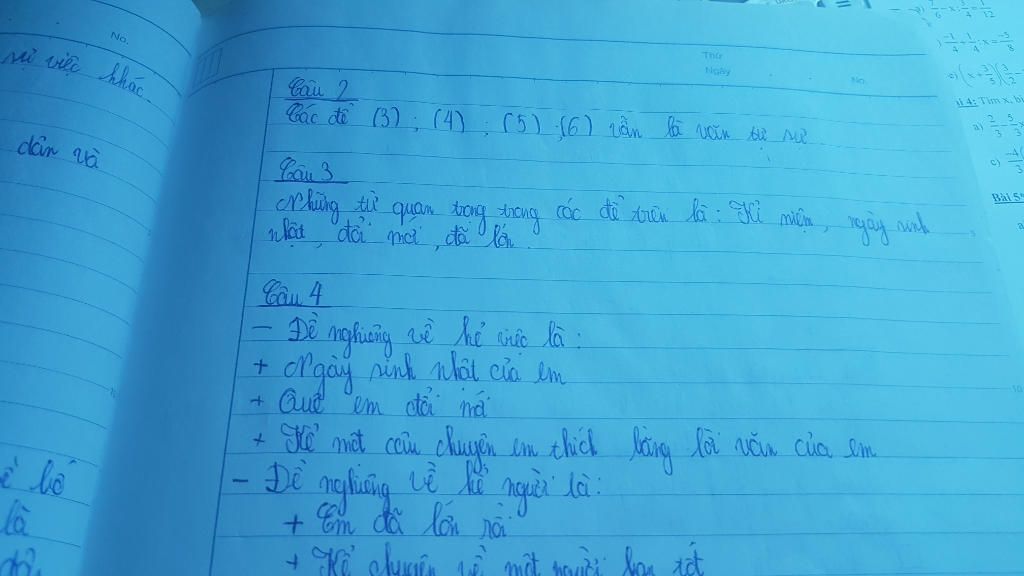 No.
sự việc khác.
dân và
ể bố
là
Thứ
Ngày
No.
Câu 2
Các đề (3) ; (4) ; (5) ; (6) vẫn là văn tự sự
Câu 3
Những từ quan trọng trong các đề trên là : Kỉ niệm, ngày sinh
nhật, đổi mới, đã lớn.
Câu 4
- Đề nghiêng về kể việc là :
+ Ngày sinh nhật của em
+ Quê em đổi mới
+ Kể một câu chuyện em thích bằng lời văn của em
- Đề nghiêng về kể người là :
+ Em đã lớn rồi
+ Kể chuyện về một người bạn tốt
Tìm x, bi
a)
c)
Bài 5